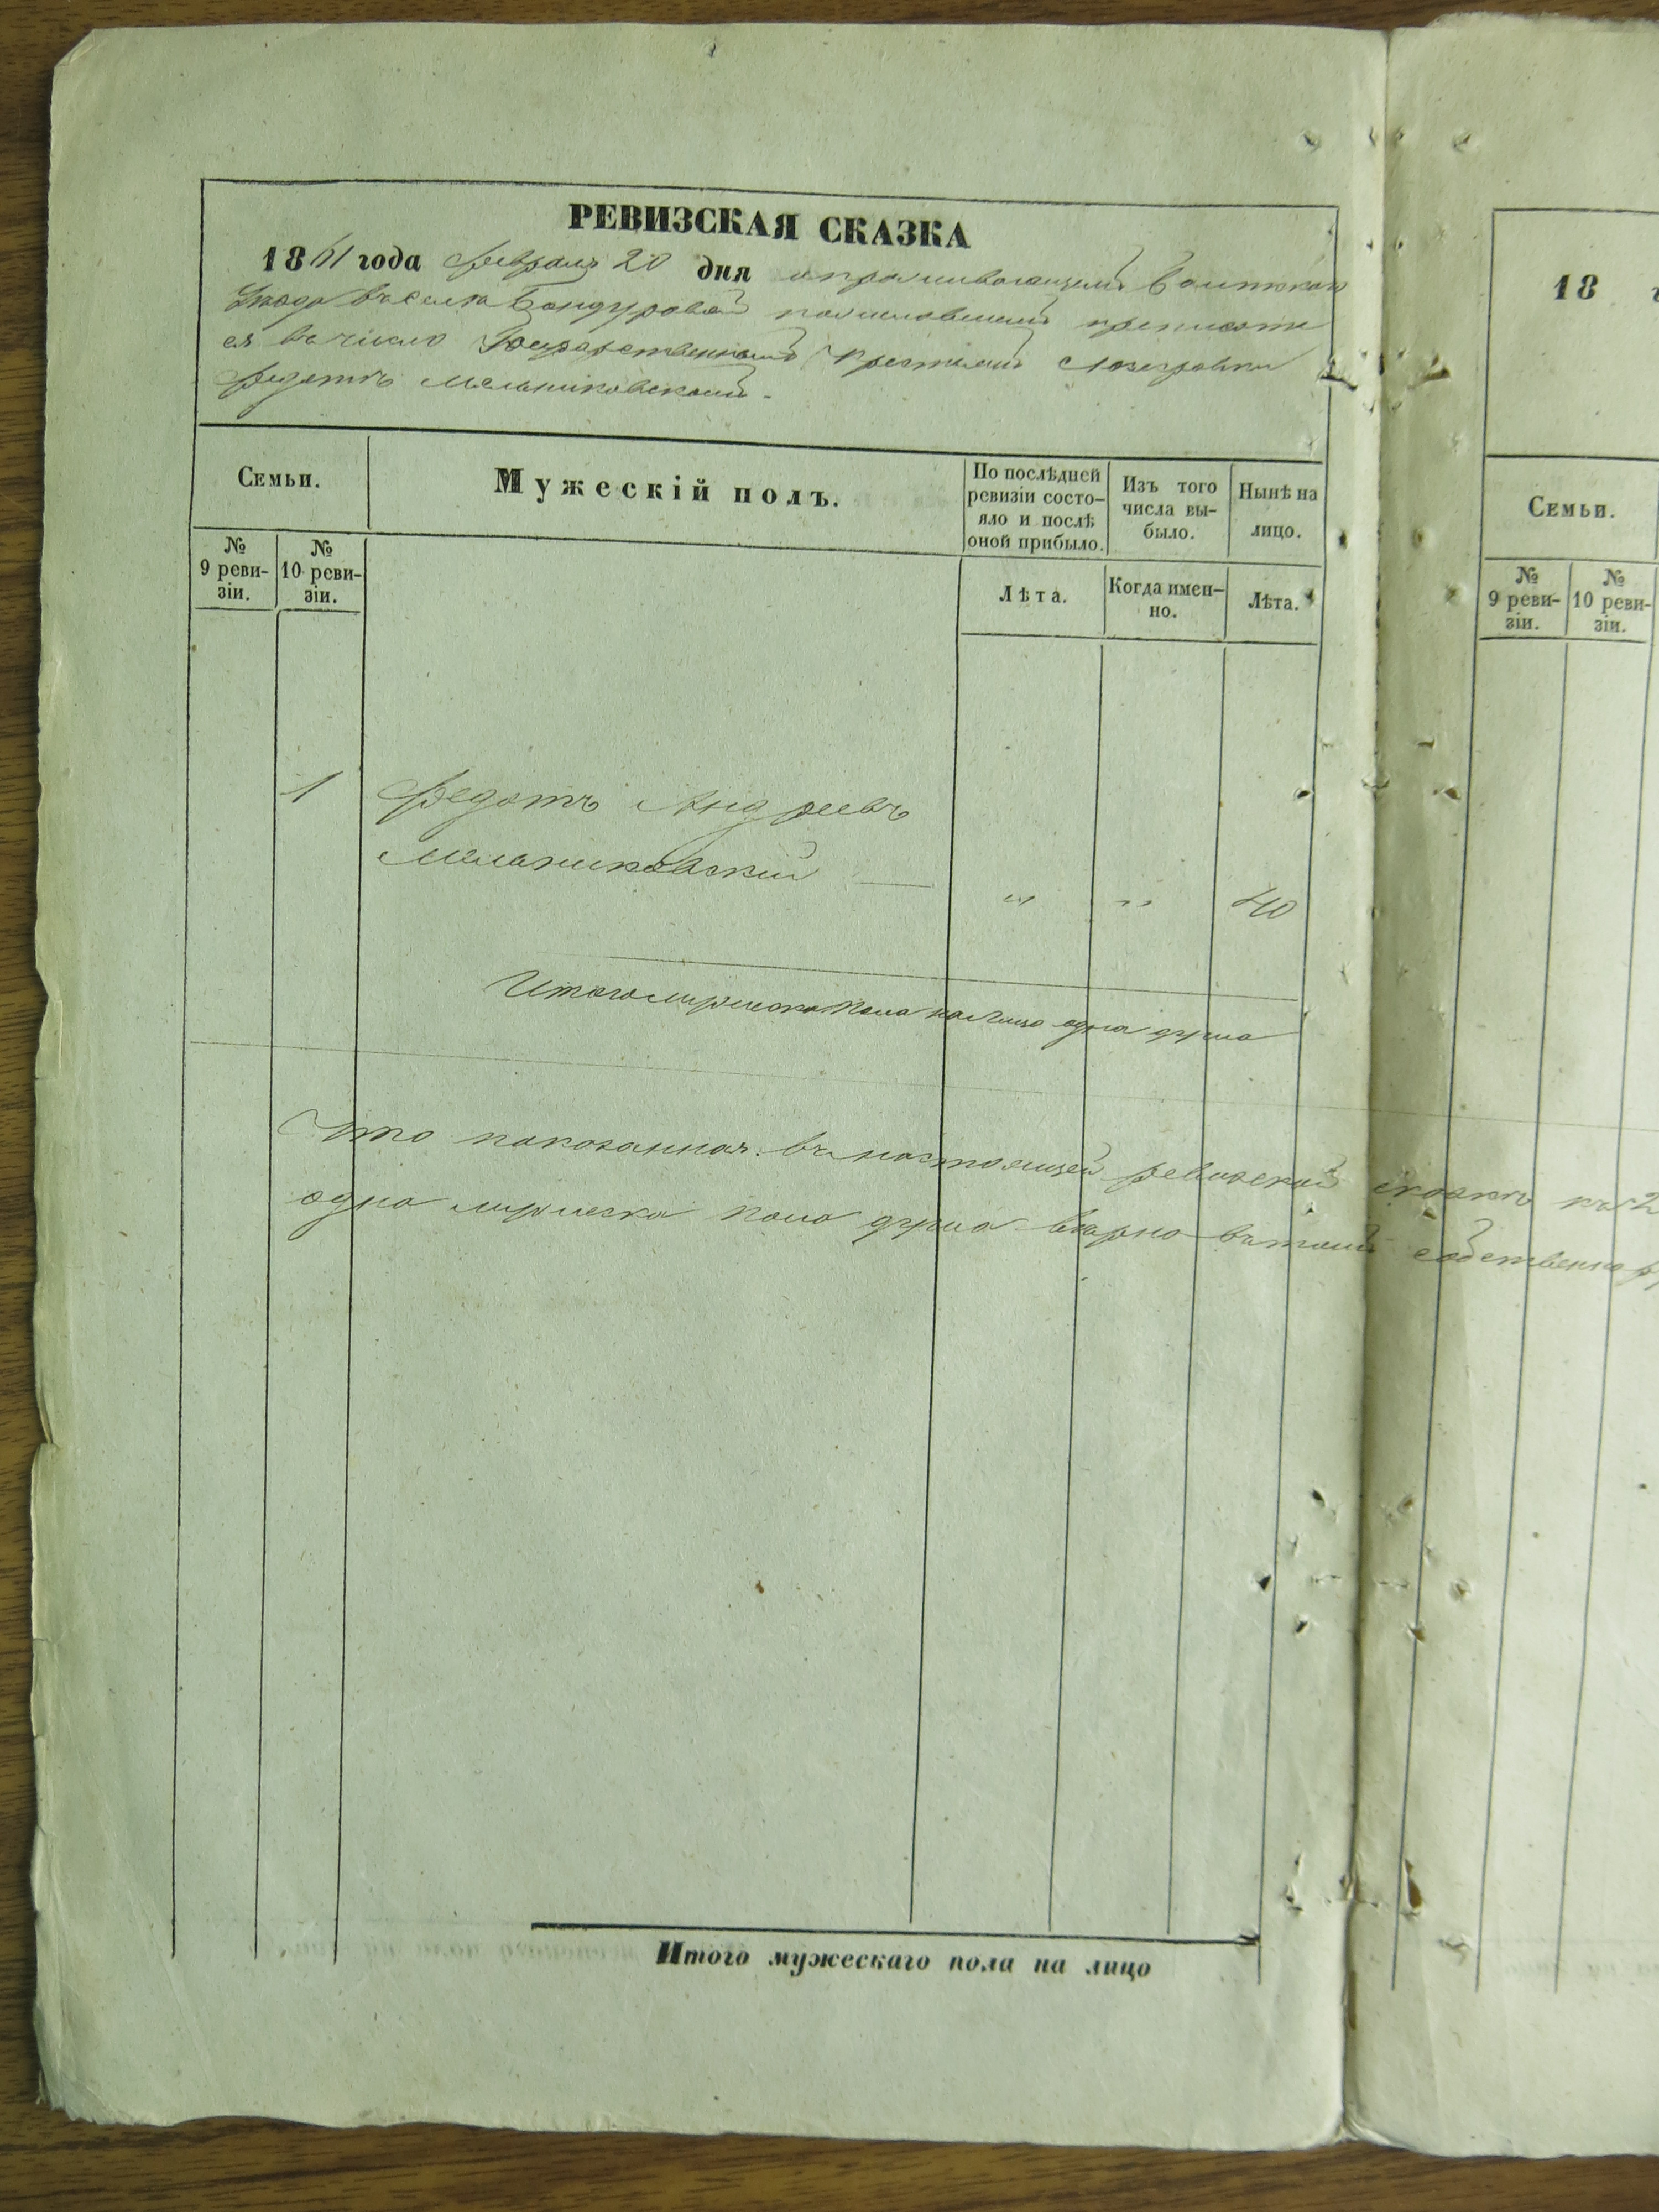 РЕВИЗСКАЯ СКАЗКА
1861 года февраля 20 дня
уезда въ селѣ Бандуровой
ся въ число Государственныхъ Крестьянъ
Федотъ Мельниковскій.
Семьи.
Мужескій полъ.
По послѣдней ревизіи состо-
яло и послѣ
оной прибыло.
Изъ того
числа вы-
было.
Нынѣ на
лицо.
№
9 реви-
зіи.
№
10 реви-
зіи.
Лѣта.
Когда имен-
но.
Лѣта.
1 Федотъ Андреевъ
Мельниковскій — „ „ 40
Итого мужеска пола на лицо одна душа
Что показанная въ настоящей ревизской сказкѣ
одна мужеска пола душа вѣрно въ томъ
Итого мужескаго пола на лицо
18
Семьи.
№
9 реви-
зіи.
№
10 реви-
зіи.